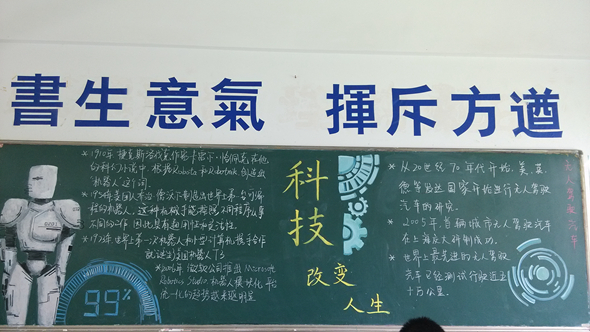 書生意氣 揮斥方遒
*1910年捷克斯洛伐克作家卡雷尔·恰佩克,在他
的科幻小说中,根据Robota和Robotnik,创造出
"机器人"这个词。
*1954年美国人乔治·德沃尔制造出世界上第一台可编
程的机器人,这种机械手能按照不同程序从事
不同的工作,因此具有通用性和灵活性。
*19 年世界上第一次机器人和小型计算机携手合作
就诞生了 机器人T3
*2006年 微软公司推出 Microsoft
Robotics Studio,机器人模块化,平台
统一化的趋势越来越明显
99%
科技
改变
人生
无人驾驶汽车
* 从20世纪70年代开始,美、英、
德等发达国家开始进行无人驾驶
汽车的研究。
* 2005年,首辆城市无人驾驶汽车
在上海交大研制成功。
* 世界上最先进的无人驾驶
汽车已经测试行驶近五
十万公里。